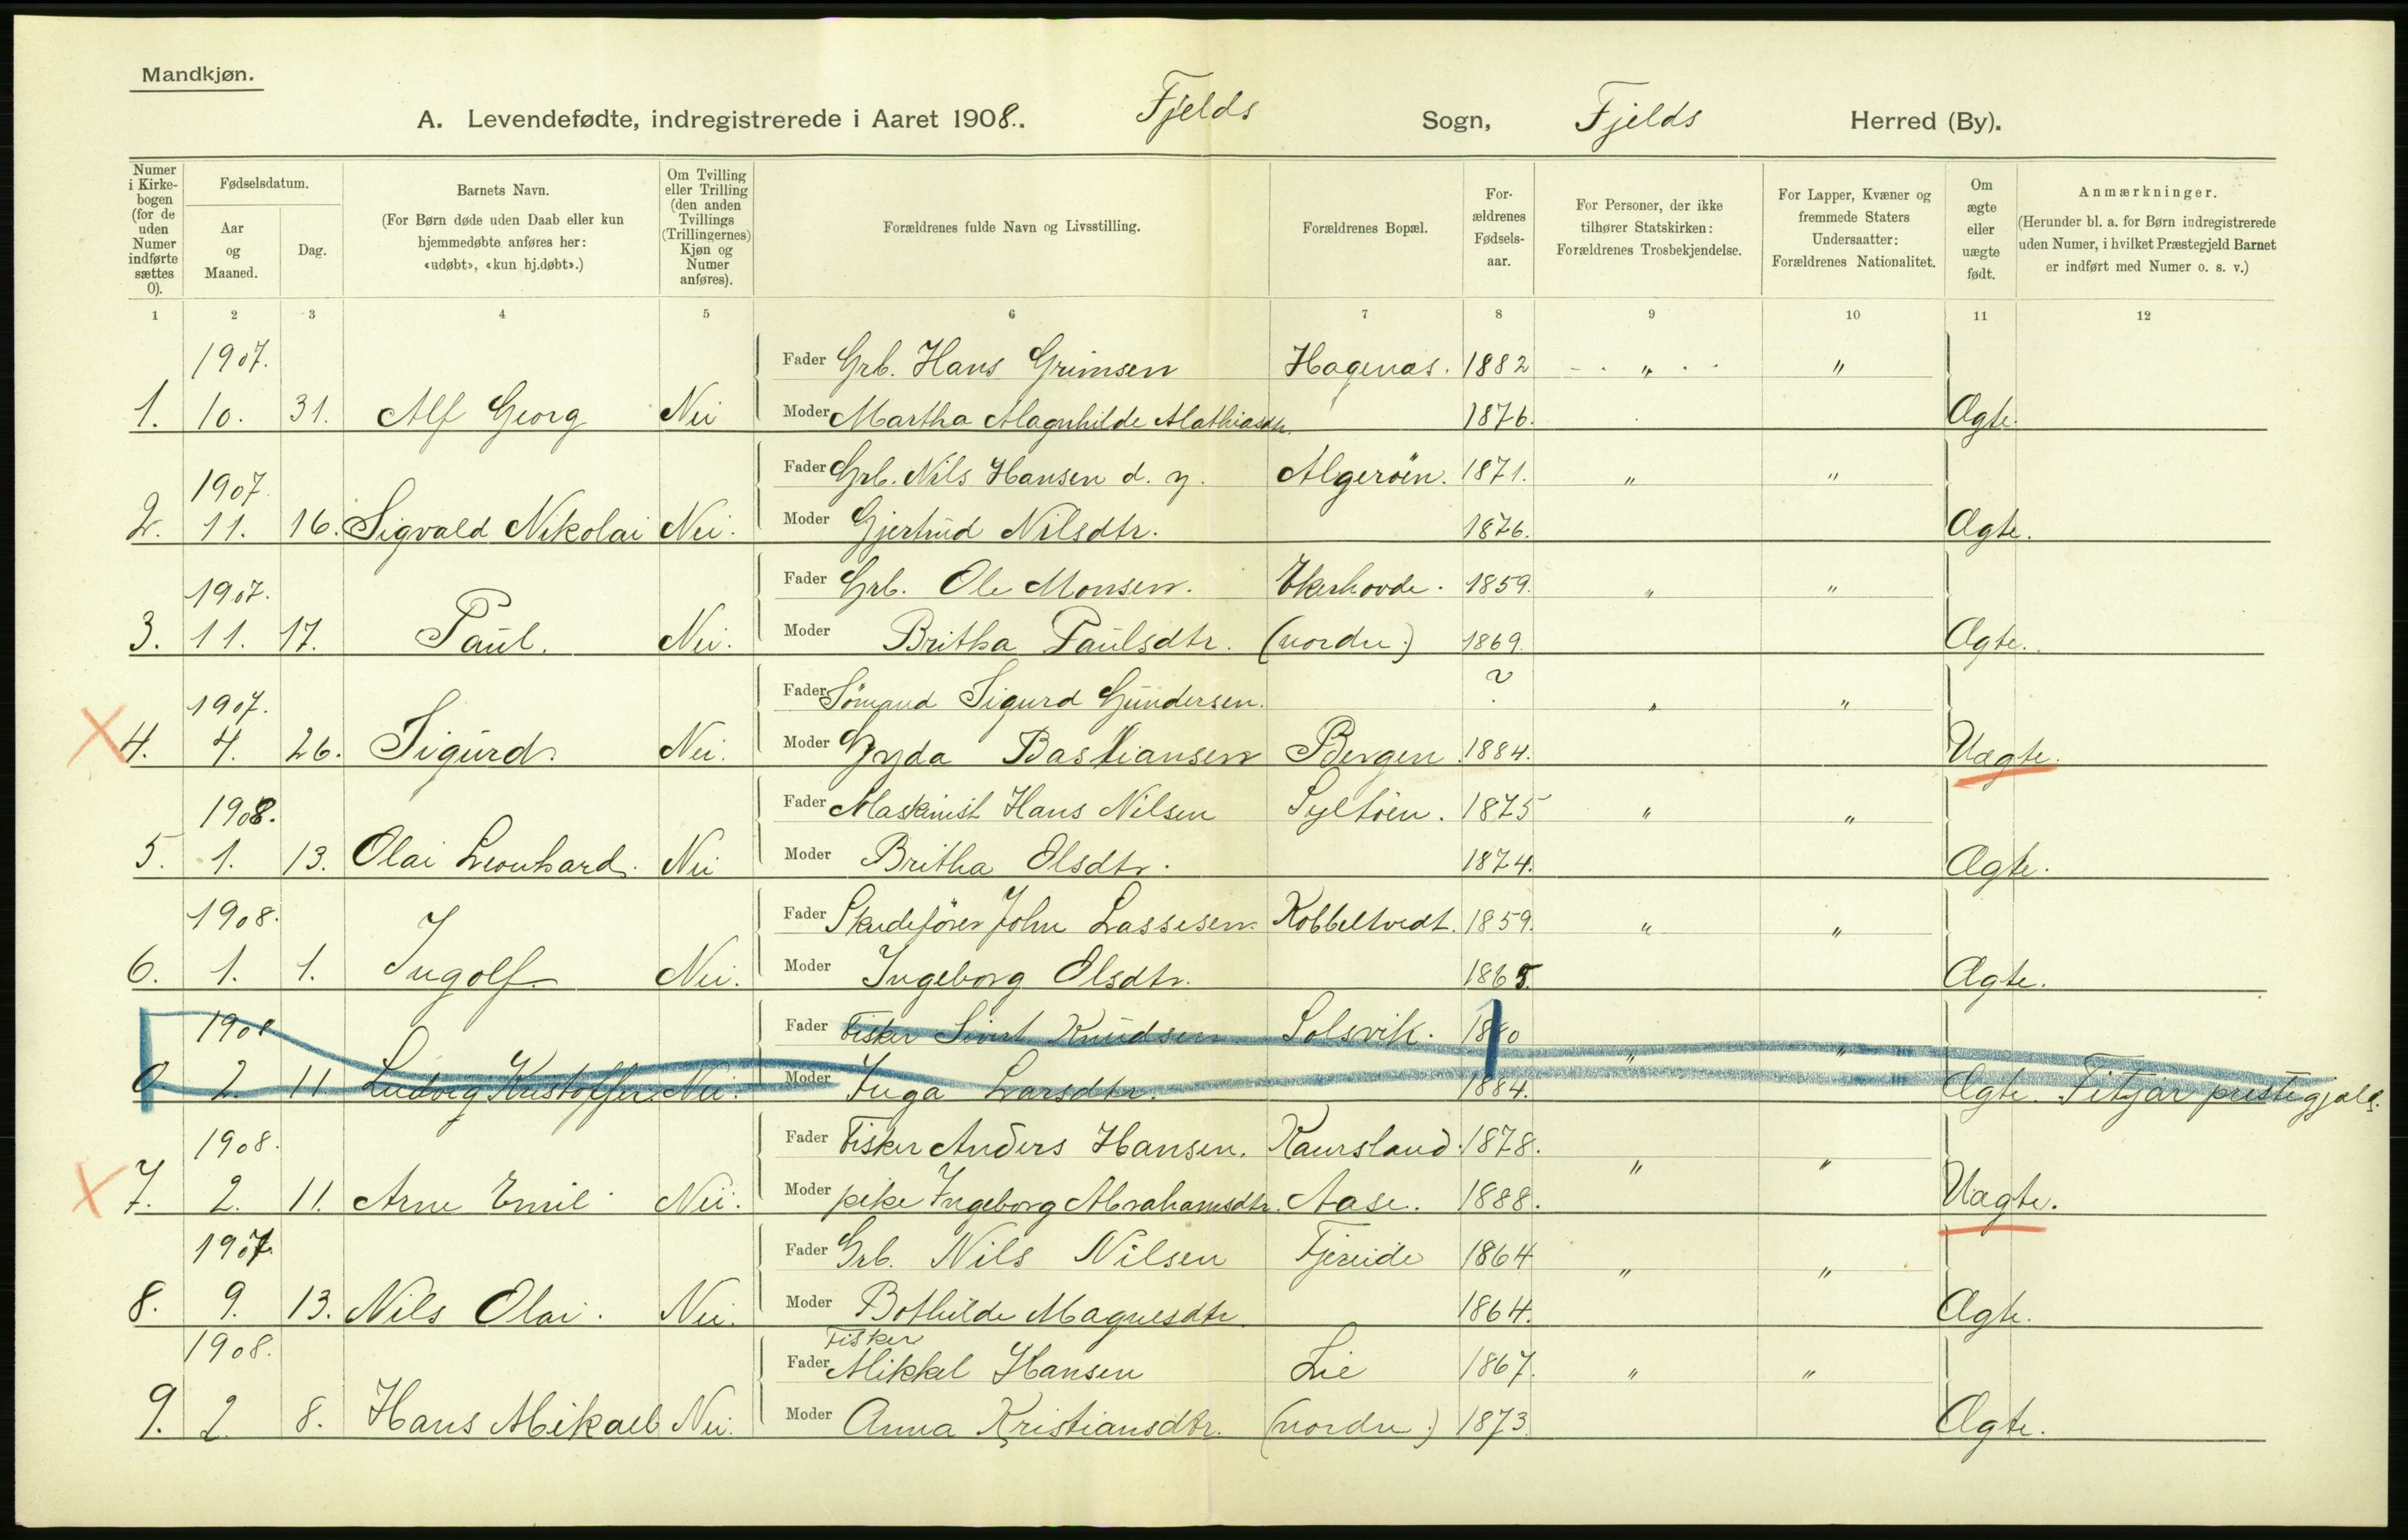 Mandkjøn.
A. Levendefødte, indregistrerede i Aaret 1908. Fjelds Sogn, Fjelds Herred (By).
Numer i Kirkebogen (for de uden Numer indførte sættes 0).
Fødselsdatum.
Aar og Maaned.
Dag.
Barnets Navn.
(For Børn døde uden Daab eller kun hjemmedøbte anføres her: «udøbt», «kun hj.døbt».)
Om Tvilling eller Trilling (den anden Tvillings (Trillingernes) Kjøn og Numer anføres).
Forældrenes fulde Navn og Livsstilling.
Forældrenes Bopæl.
Forældrenes Fødselsaar.
For Personer, der ikke tilhører Statskirken: Forældrenes Trosbekjendelse.
For Lapper, Kvæner og fremmede Staters Undersaatter: Forældrenes Nationalitet.
Om ægte eller uægte født.
Anmærkninger.
(Herunder bl. a. for Børn indregistrerede uden Numer, i hvilket Præstegjeld Barnet er indført med Numer o. s. v.)
1 2 3 4 5 6 7 8 9 10 11 12
1907. Fader Grb. Hans Grimsen Hagenæs. 1882 " "
1. 10. 31. Alf Georg Nei Moder Martha Magnhilde Mathiasdtr. 1876. Ægte.
1907. Fader Grb. Nils Hansen d. y. Algerøen. 1871. " "
2. 11. 16. Sigvald Nikolai Nei. Moder Gjertrud Nilsdtr. 1876. Ægte.
1907. Fader Grb. Ole Monsen. Ekerhovde. 1859. " "
3. 11. 17. Paul. Nei. Moder Britha Paulsdtr. (nordre) 1869. Ægte.
1907. Fader Sømand Sigurd Gundersen. ? " "
4. 4. 26. Sigurd. Nei. Moder Gyda Bastiansen Bergen 1884. Uægte.
1908. Fader Maskinist Hans Nilsen Syltøen. 1875 " "
5. 1. 13. Olai Leonhard. Nei Moder Britha Olsdtr. 1874. Ægte.
1908. Fader Skudefører John Lassesen. Kobbeltvedt. 1859. " "
6. 1. 1. Ingolf Nei. Moder Ingeborg Olsdtr. 1865. Ægte.
1908 Fader Fisker Sivert Knudsen Solsvik. 1880 " "
0 2. 11 Ludvig Kristoffer. Nei. Moder Inga Larsdtr. 1884. Ægte. Fitjar prestegjeld.
1908. Fader Fisker Anders Hansen. Kaursland. 1878. " "
7. 2. 11. Arne Emil Nei. Moder pike Ingeborg Abrahamsdtr. Aase. 1888. Uægte.
1907. Fader Grb. Nils Nilsen Fjereide 1864 " "
8. 9. 13. Nils Olai. Nei. Moder Bothilde Magnesdtr. 1864. Ægte.
1908. Fisker
Fader Mikkel Hansen Lie 1867. " "
9. 2. 8. Hans Mikael Nei. Moder Anna Kristiansdtr. (nordre) 1873. Ægte.